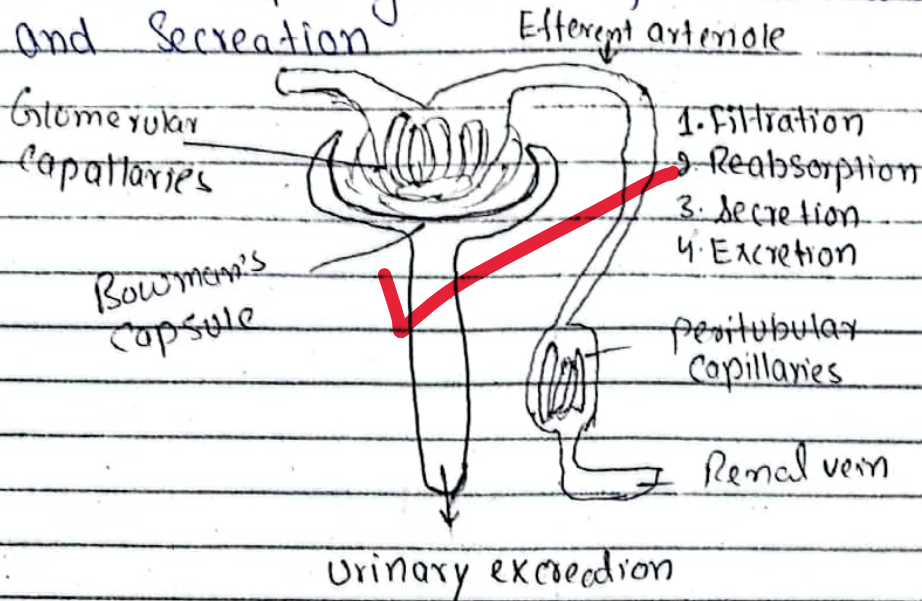 and Secreation
Efferent arteriole
Glomerular
Capallaries
1. Filtration
2. Reabsorption
3. Secretion
4. Excretion
Bowman's
Capsule
peritubular
Capillaries
Renal vein
Urinary excreadion